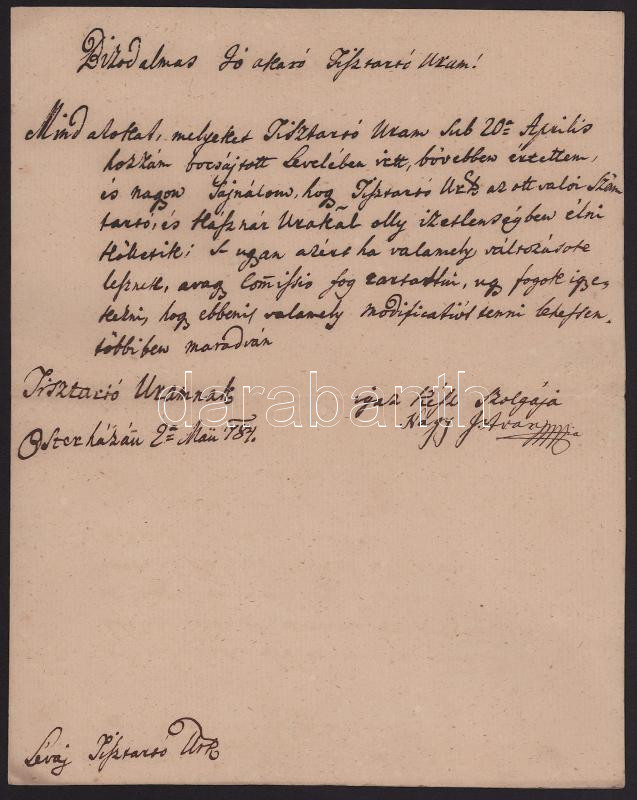 Bizodalmas Jó akaró Tisztartó Uram!
Mind azokat, melyeket Tisztartó Uram sub 20a Aprilis
hozzám bocsájtott Levelében irtt, bővebben értettem,
és nagyon Sajnálom, hogy Tisztartó Urk az ott való Szám
tartó, és Kásznár Urakal olly izetlenségben élni
kölletik; s ugyan azért ha valamely változások
lesznek, avagy Com̄issio fog tartattni, ugy fogok igye-
kezni, hogy ebbenis valamely modificatiót tenni lehessen.
többiben maradván
Tisztartó Uramnak
igaz kész szolgája
Nagy István
Eszterházán 2a Maii 784.
Lévaj Tisztartó Urk
darabanth